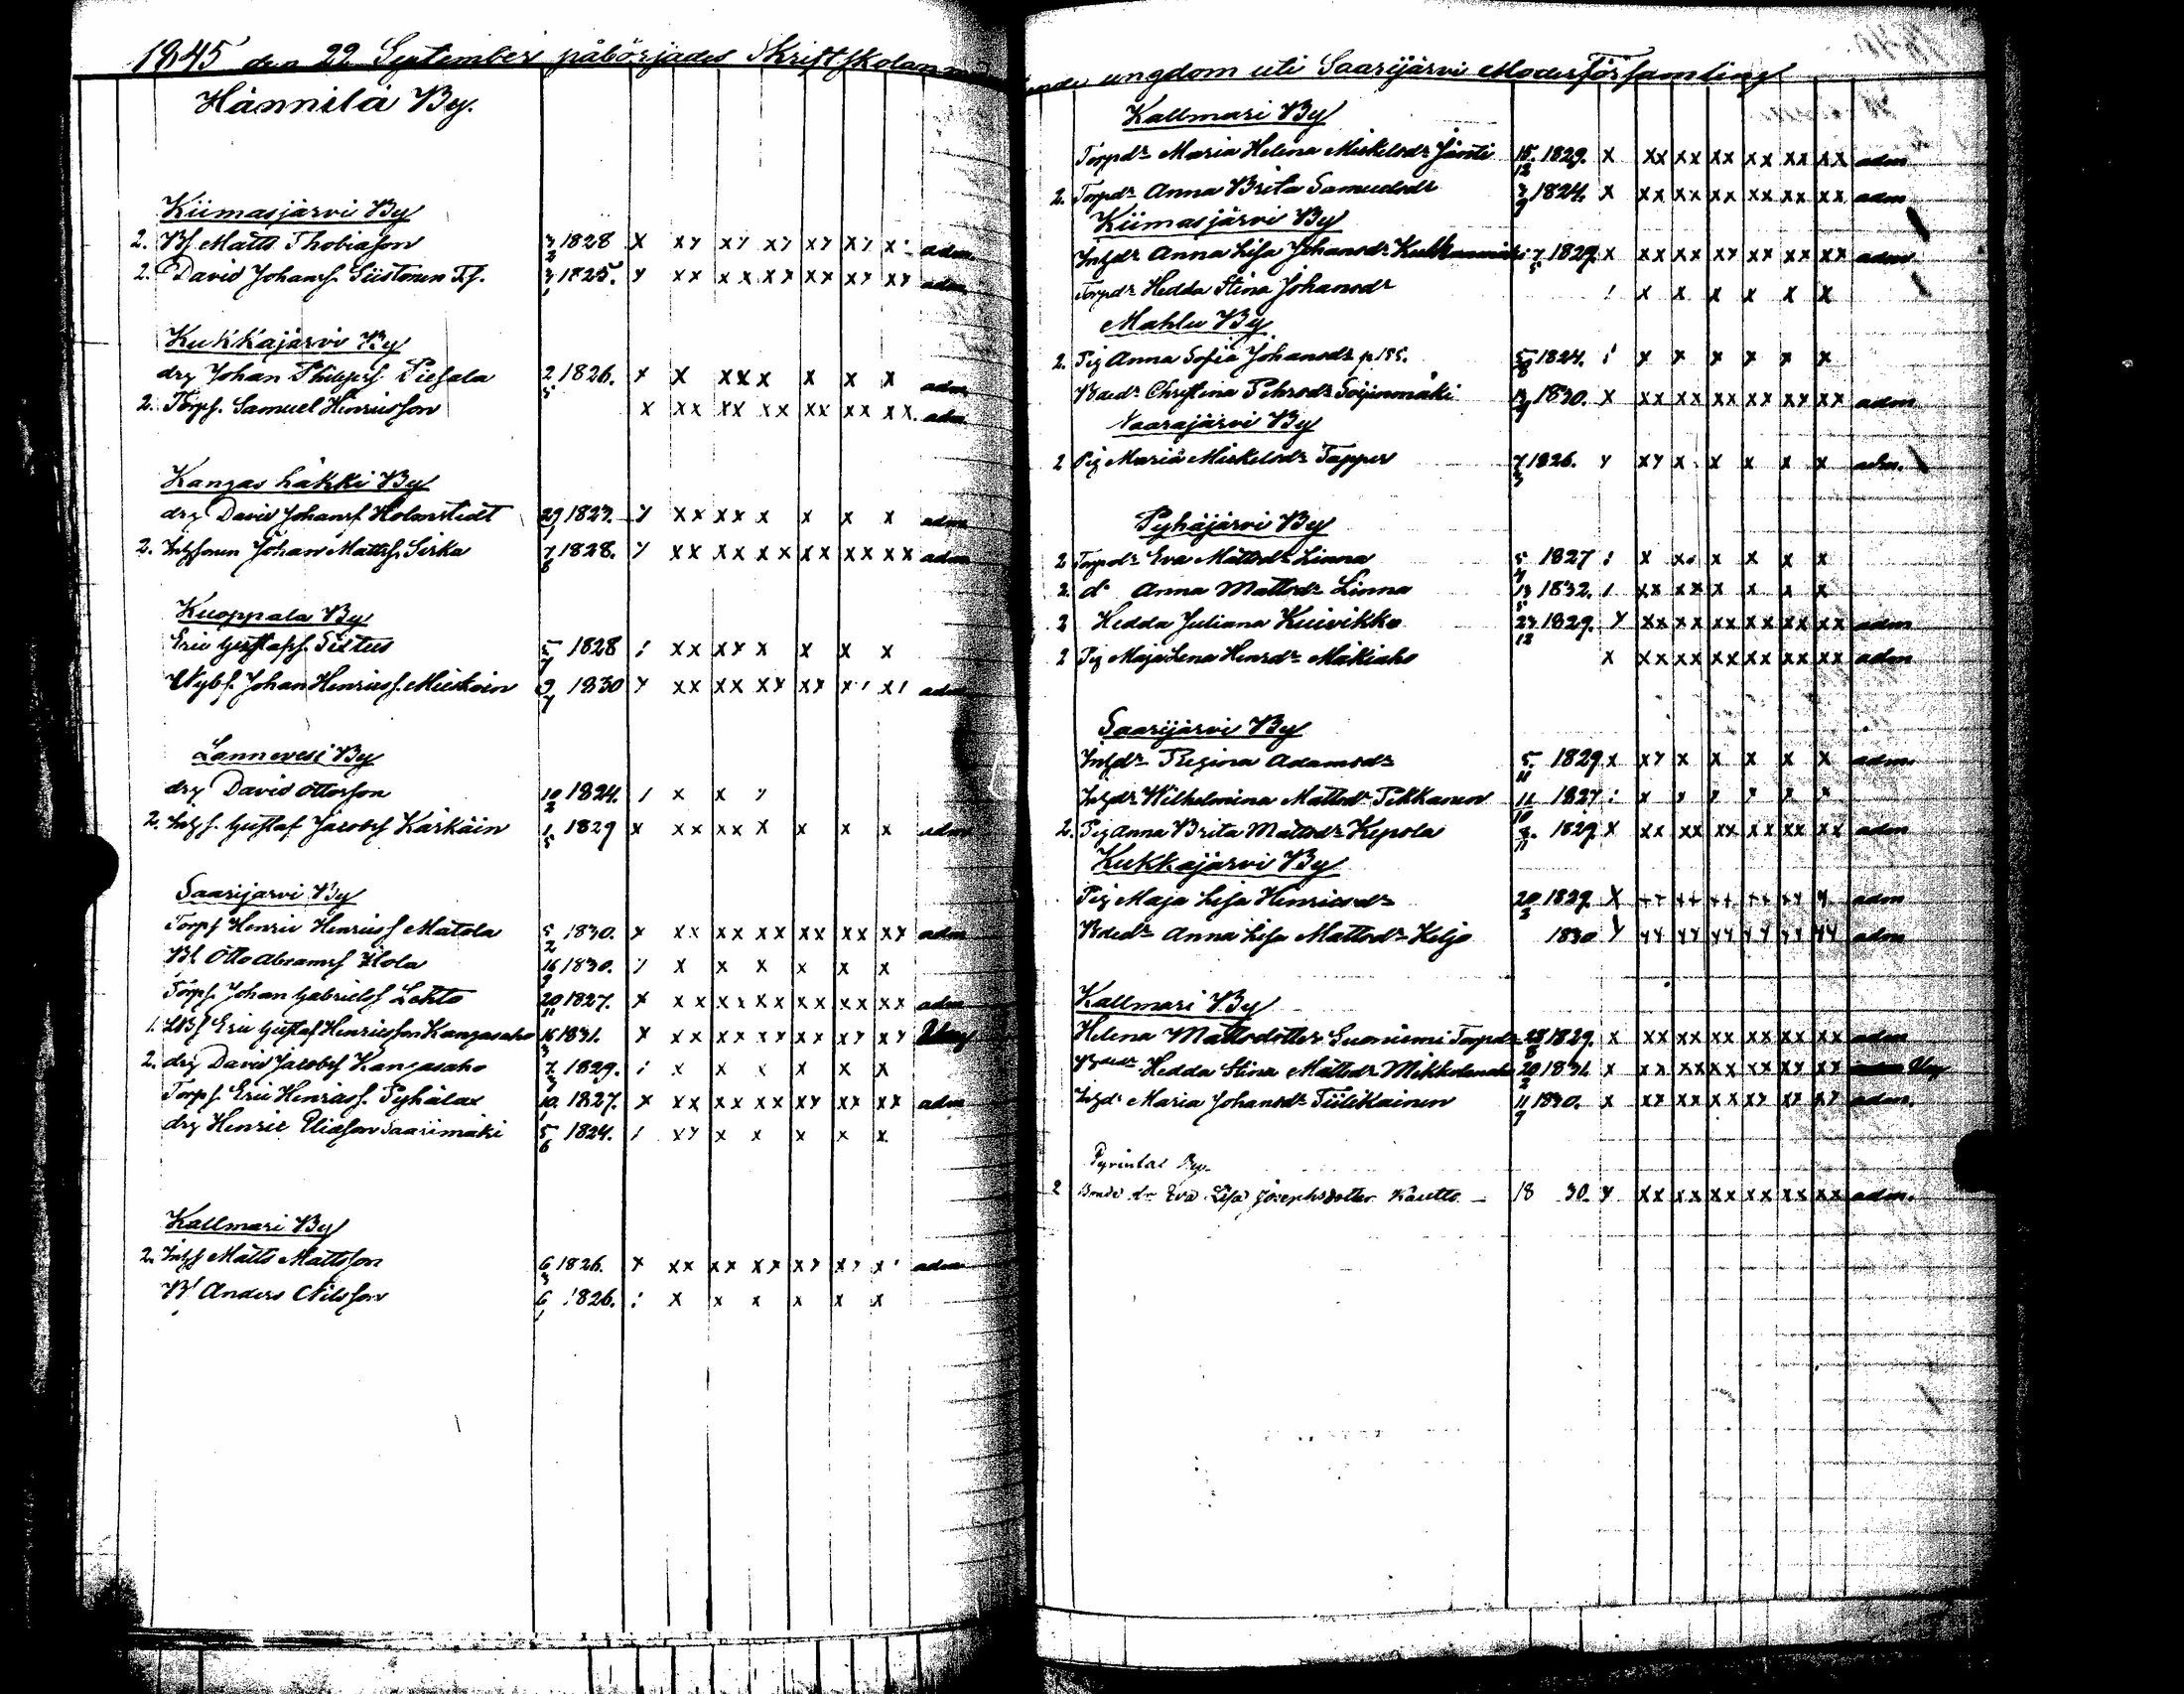 1845 den 22 September påbörjades Skriftskolan
Hännilä By.
Kiimasjärvi By
2. Bf Matts Thobiasson 3/2 1828 x xy xy xy xy xy x adm
2. David Johansf. Siistonen Tf. 3/1 1825. y xx xx xx xx xy xy adm
Kukkajärvi By
drg Johan Philipsf. Piesala 2/5 1826. x x xxx x x x adm
2. Torpf. Samuel Henricsson x xx xx xx xx xx xx. adm
Kangashäkki By
drg David Johansf Holmstedt 29/1 1823. y xx xx x x x x adm
2. Inhysonen Johan Mattsf. Sirka 7/8 1828. y xx xx xx xx xx xx adm
Kuoppala By
Eric Gustafsf. Tiitus 5/7 1828 / xx xy x x x x
Nybf. Johan Henricsf. Mieskoin 9/7 1830 y xx xx xy xy x/ x/ adm
Lannevesi By
drg David Ottosson 10/2 1824. / x x y
2. Inhyf. Gustaf Jacobsf Kärkäin 1/5 1829 x xx xx x x x x adm
Saarijärvi By
Torpf Henric Henricsf Mätola 5/2 1830. x xx xx xx xx xx xy adm
Bf Otto Abramsf Ilola 16/9 1830. / x x x x x x
Torpf. Johan Gabrielsf Lehto 20/11 1827. x xx xx xx xx xx xx adm
1. Eric Gustaf Henricsson Kangasaho 16/3 1831. x xx xx xy xx xy xy
2. drg David Jacobsf Kangasaho 7/3 1829. / x x x x x x
Torpf. Eric Henricsf. Pyhälax 10/1 1827. x xx xx xx xy xx xx adm
drg Henric Eliasson Saarimäki 5/6 1824. / xy x x x x x
Kallmari By
2. Inhyf Matts Mattsson 6/3 1826. y xx xx xy xy xy x/ adm
Bf Anders Nilsson 6/1 1826. / x x x x x x
ungdom uti Saarijärvi Moderförsamling
Kallmari By
Torpdr Maria Helena Mickelsdr Jänti 15/12 1829. x xx xx xx xx xx xx adm
2. Torpdr Anna Brita Samuelsdr 3/9 1824. x xx xx xx xx xx xx adm
Kiimasjärvi By
Inhydr Anna Lisa Johansdr 7/5 1829. x xx xx xy xx xx xx adm
Torpdr Hedda Stina Johansdr / x x x x x x
Mahlu By
2. Pig Anna Sofia Johansdr p 185. 5/8 1824. / x x x x x x
Bdr Christina Pehrsdr 13/9 1830. x xx xx xx xx xy xx adm
Naarajärvi By
2 Pig Maria Mickelsdr Tapper 7/3 1826. y xy x x x x x adm.
Pyhäjärvi By
2 Torpdr Eva Mattsdr Linna 5/4 1827 / x x x x x x
2 do Anna Mattsdr Linna 13/5 1832. / xx xx x x x x
2 Hedda Juliana Kuivikko 24/12 1829. y xx xx xx xx xx xx adm
2 Pig Maja Lena Henrdr Mäkiaho x xx xx xx xx xx xx adm
Saarijärvi By
Inhydr Regina Adamsdr 5/11 1829 x xy x x x x x adm.
Inhydr Wilhelmina Mattsdr Pekkanen 11/10 1827 / x y y x x x
2. Pig Anna Brita Mattsdr Kepola 8/11 1829. x xx xx xx xx xx xx adm
Kukkajärvi By
Pig Maja Lisa Henricsdr 20/2 1829. x xx xx xx xx xy y adm
Bdedr Anna Lisa Mattsdr Keljo 1830 y yy yy yy yy yy yy adm
Kallmari By
Helena Mattsdotter Suoniemi Torpdr 28/8 1829. x xx xx xx xx xx xx adm
Hedda Stina Mattsdr 20/2 1831. x xx xx xx xx xx xx
Inhydr Maria Johansdr Tiilikainen 11/9 1830. x xx xx xx xy xy xy adm.
By
2 Eva Lisa Josephsdotter Kautto 18 30. y xx xx xx xx xx xx adm.